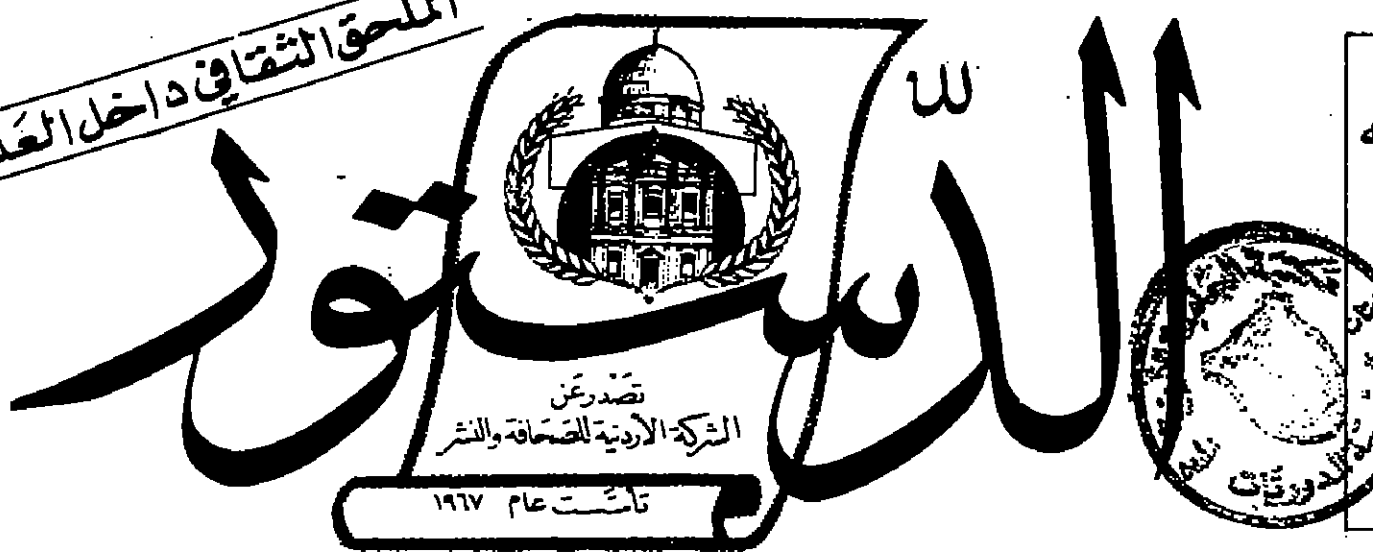 الملحق الثقافي داخل
الدّستور
تصدر عن
الشركة الأردنية للصحافة والنشر
تأسست عام ١٩٦٧